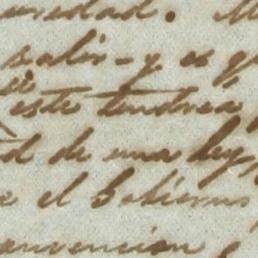 unidad. M
salir - y es q
si
este tendrea
d de una ley,
e el Gobierno
onvencion